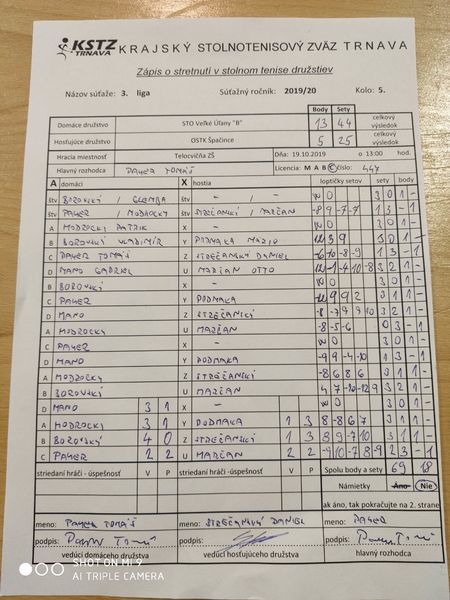 KSTZ TRNAVA KRAJSKÝ STOLNOTENISOVÝ ZVÄZ TRNAVA
Zápis o stretnutí v stolnom tenise družstiev
Názov súťaže: 3. liga Súťažný ročník: 2019/20 Kolo: 5.
Body Sety
Domáce družstvo STO Veľké Úľany "B" 13 44 celkový výsledok
Hosťujúce družstvo OSTK Špačince 5 25 celkový výsledok
Hracia miestnosť Telocvičňa ZŠ Dňa, 19.10.2019 o 13:00 hod.
Hlavný rozhodca PAYER TOMÁŠ Licencia: M A B C číslo: 447
A domáci X hostia loptičky setov sety body
štv BOROVSKÝ / GLEMBA štv - / - WO 3 0 1 -
štv PAYER / MODROCKY štv STREČANSKÝ / MARČAN -8 9 -7 -7 1 3 - 1
A MODROCKY PATRIK X - WO 3 0 1 -
B BOROVSKÝ VLADIMÍR Y PODMAKA MARIO 12 3 9 3 0 1 -
C PAYER TOMÁŠ Z STREČANSKÝ DANIEL -6 10 -8 -9 1 3 - 1
D MANO GABRIEL U MARČAN OTTO 12 -1 -4 10 8 3 2 1 -
B BOROVSKÝ X - WO 3 0 1 -
C PAYER Y PODMAKA -12 9 9 2 3 1 1 -
D MANO Z STREČANSKÝ 8 -7 9 10 3 2 1 -
A MODROCKY U MARČAN -8 -5 -6 0 3 - 1
C PAYER X - WO 3 0 1 -
D MANO Y PODMAKA -9 9 -4 -10 1 3 - 1
A MODROCKY Z STREČANSKÝ -8 6 8 6 3 1 1 -
B BOROVSKÝ U MARČAN 4 7 -10 -12 9 3 2 1 -
D MANO 3 1 X - WO 3 0 1 -
A MODROCKY 3 1 Y PODMAKA 1 3 8 -8 6 7 3 1 1 -
B BOROVSKÝ 4 0 Z STREČANSKÝ 1 3 8 9 -7 10 3 1 1 -
C PAYER 2 2 U MARČAN 2 2 -9 10 -7 8 -9 2 3 - 1
striedaní hráči - úspešnosť V P striedaní hráči - úspešnosť V P Spolu body a sety 69 18
Námietky Áno Nie
ak áno, tak pokračujte na 2. strane
meno: PAYER TOMÁŠ meno: STREČANSKÝ DANIEL meno: PAYER
podpis: podpis: podpis:
vedúci domáceho družstva vedúci hosťujúceho družstva hlavný rozhodca
SHOT ON MI 9
AI TRIPLE CAMERA